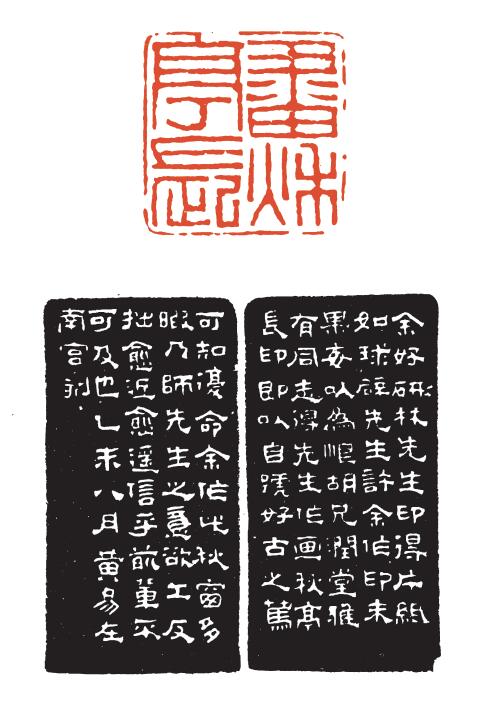 畫秋
亭長
余好研林先生印得片紙
如球璧先生許余作印未
果每以為恨胡兄潤堂雅
有同志得先生作画秋亭
長印即以自號好古之篤
可知復命余作此秋窗多
暇乃師先生之意欲工反
拙愈近愈遥信乎前輩不
可及也乙未八月黄易在
南宮刻